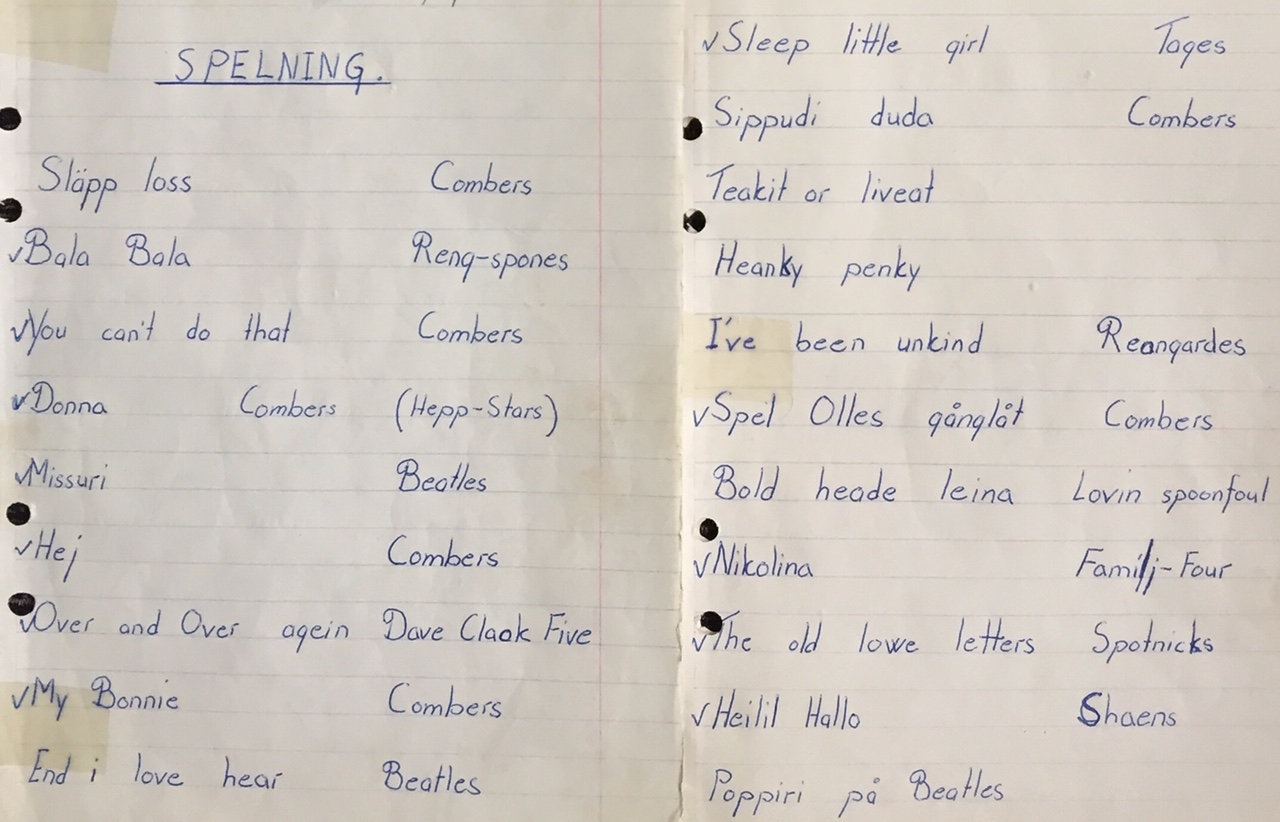 SPELNING.
Släpp loss Combers
✓Bala Bala Renq-spones
✓You can't do that Combers
✓Donna Combers (Hepp-Stars)
✓Missuri Beatles
✓Hej Combers
✓Over and Over agein Dave Claok Five
✓My Bonnie Combers
End i love hear Beatles
✓Sleep little girl Tages
Sippudi duda Combers
Teakit or liveat
Heanky penky
I've been unkind Reangardes
✓Spel Olles gånglåt Combers
Bold heade leina Lovin spoonfoul
✓Nikolina Familj-Four
✓The old lowe letters Spotnicks
✓Heilil Hallo Shaens
Poppiri på Beatles